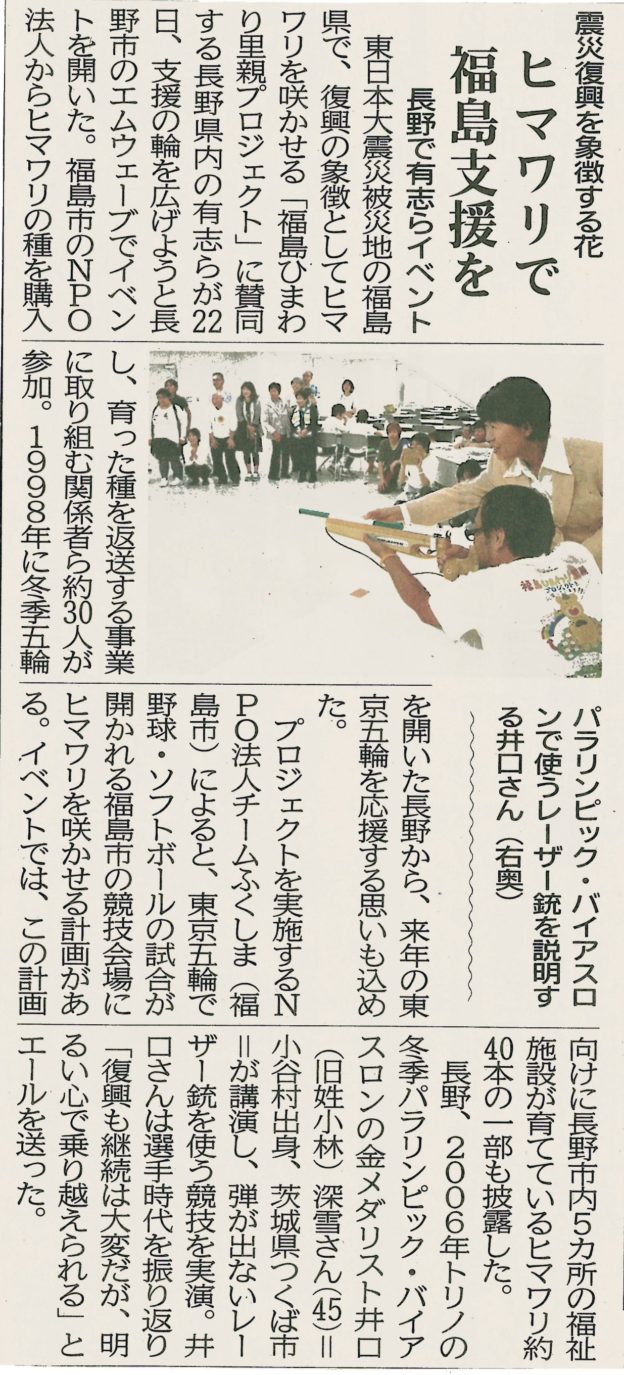 震災復興を象徴する花
ヒマワリで
福島支援を
長野で有志らイベント
東日本大震災被災地の福島
県で、復興の象徴としてヒマ
ワリを咲かせる「福島ひまわ
り里親プロジェクト」に賛同
する長野県内の有志らが22
日、支援の輪を広げようと長
野市のエムウェーブでイベン
トを開いた。福島市のNPO
法人からヒマワリの種を購入
し、育った種を返送する事業
に取り組む関係者ら約30人が
参加。1998年に冬季五輪
を開いた長野から、来年の東
京五輪を応援する思いも込め
た。
プロジェクトを実施するN
PO法人チームふくしま（福
島市）によると、東京五輪で
野球・ソフトボールの試合が
開かれる福島市の競技会場に
ヒマワリを咲かせる計画があ
る。イベントでは、この計画
向けに長野市内5カ所の福祉
施設が育てているヒマワリ約
40本の一部も披露した。
長野、2006年トリノの
冬季パラリンピック・バイア
スロンの金メダリスト井口
（旧姓小林）深雪さん(45)＝
小谷村出身、茨城県つくば市
＝が講演し、弾が出ないレー
ザー銃を使う競技を実演。井
口さんは選手時代を振り返り
「復興も継続は大変だが、明
るい心で乗り越えられる」と
エールを送った。
パラリンピック・バイアスロ
ンで使うレーザー銃を説明す
る井口さん（右奥）